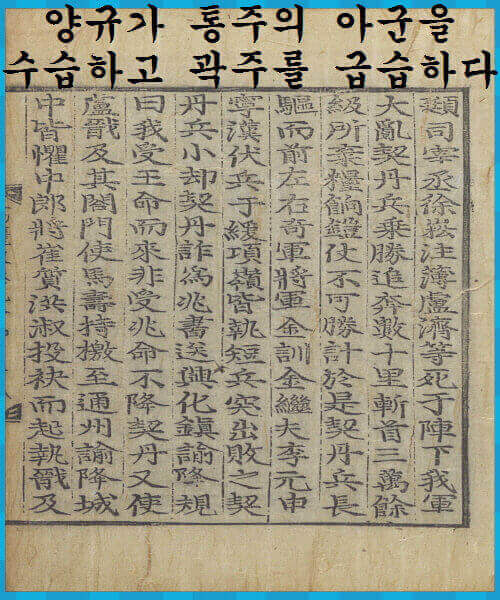 양규가 통주의 아군을
수습하고 곽주를 급습하다
頲司宰丞徐崧注簿盧濟等死于陣下我軍
大亂契丹兵乘勝追奔數十里斬首三萬餘
級所棄糧餉鎧仗不可勝計於是契丹兵長
驅而前左右奇軍將軍金訓金繼夫李元申
寧漢伏兵于緩項嶺皆執短兵突出敗之契
丹兵小却契丹詐爲兆書送興化鎭諭降規
曰我受王命而來非受兆命不降契丹又使
盧戩及其閤門使馬壽持檄至通州諭降城
中皆懼中郞將崔質洪淑投袂而起執戩及